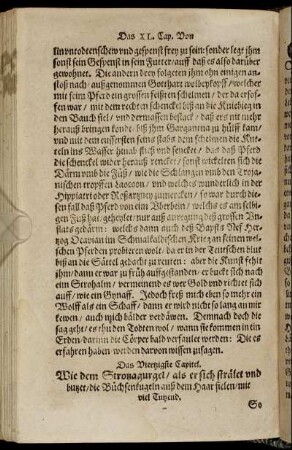 Das XL. Cap. Von
sein von todten schew vnd gespenst frey zu sein: sonder legt ihm
sonst sein Gespenst in sein Futter, auff daß es also darüber
gewohnet. Die andern drey folgeten ihm ohn einigen an-
stoß nach: außgenommen
mit seim Pferd ein grossen
war / mit dem rechten schenckel biß an die Kniebieg in
den Bauch fiel / vnd dermassen besteckt / daß er es nit mehr
herauß bringen konde, biß ihm Gargantua zu hülff kam /
vnd mit dem eussersten seins stabs dem schelmen die Kut-
teln ins Wasser hinab stieß vnd senckte / das daß Pferd
die schenckel wider herauß renckt / sonst wickelten sich die
Därm vmb die Füß / wie die Schlangen vmb den Troja-
nischen tropffen Laocoon / vnd welches wunderlich in der
Hippiatri oder Roßartzney zumercken / so war durch die-
sen fall daß Pferd von eim Vberbein / welchs es am selbi-
gen Fuß hat, geheylet / nur auß anregung deß grossen Vn-
flats gedärm: welchs dann auch deß Bapsts Nef Her-
zog Octavian im Schmalkaldischen Krieg an seinen wel-
schen Pferden probieren wolt / da er in der Teutschen blut
biß an die Sättel gedacht zu reuten: aber die Kunst fehlt
ihm / dann er war zu früh auffgestanden / er buckt sich nach
eim Strohalm / vermeinend es wer Gold vnd richtet sich
auff / wie ein Gynaff. Jedoch freßt mich eben so mehr ein
Wolff als ein Schaff / dann er wird nicht so lang an mir
kewen, auch mich bälder verdäwen. Demnach doch die
sag geht / es thu den Todten wol / wann sie kommen in ein
Erden / darinn die Cörper bald verfaulet werden: Die es
erfahren haben werden darvon wissen zusagen.
Das Viertzigste Capitel.
Wie dem Strozagurgel / als er sich strälet vnd
butzet / die Büchsenkugeln auß dem Haar fielen / mit
viel Tutzend.
So